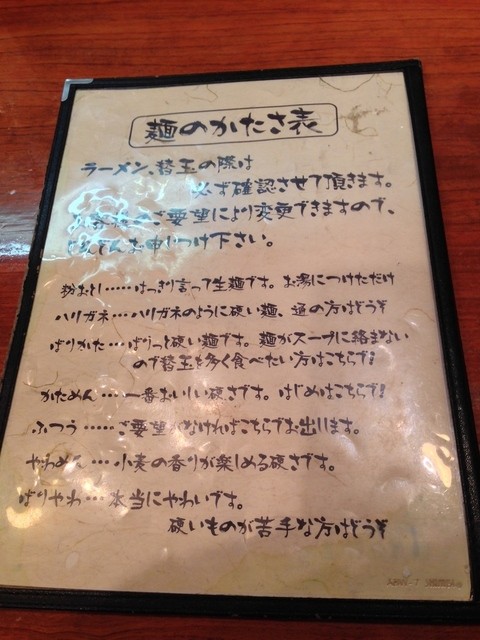 麺のかたさ表
ラーメン、替玉の際は
必ず確認させて頂きます。
お客様のご要望により変更できますので、
お申しつけ下さい。
粉おとし……はっきり言って生麺です。お湯につけただけ
ハリガネ…ハリガネのように硬い麺、通の方はどうぞ
ばりかた…ばりっと硬い麺です。麺がスープに絡まない
ので替玉を多く食べたい方はこちらで!
かためん…一番おいしい硬さです。はじめはこちらで!
ふつう……ご要望がなければこちらでお出しします。
やわめん…小麦の香りが楽しめる硬さです。
ばりやわ…本当にやわいです。
硬いものが苦手な方はどうぞ